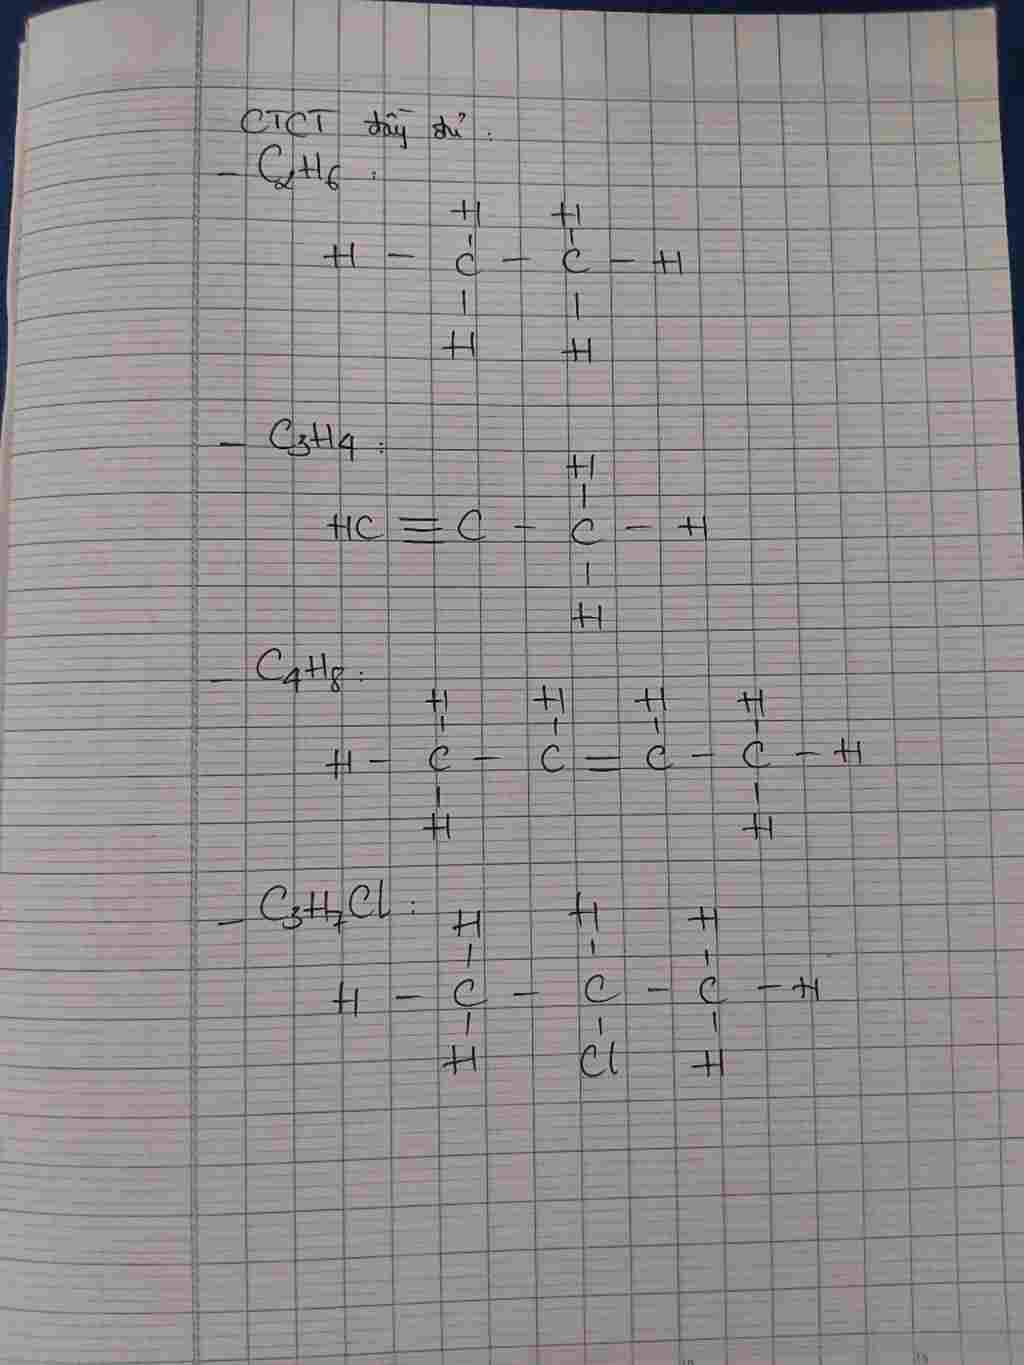 CTCT đầy đủ :
- C2H6 :
H H
H - C - C - H
H H
- C3H4 :
H
HC ≡ C - C - H
H
- C4H8 :
H H H H
H - C - C = C - C - H
H H
- C3H7Cl :
H H H
H - C - C - C - H
H Cl H